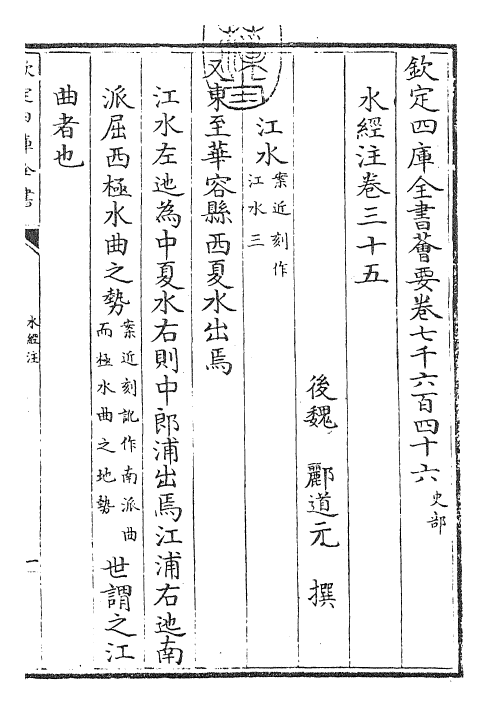 欽定四庫全書薈要卷七千六百四十六 史部
水經注卷三十五
後魏 酈道元 撰
江水 案近刻作江水三
又東至華容縣西夏水出焉
江水左迆為中夏水右則中郎浦出焉江浦右迆南
派屈西極水曲之勢 案近刻訛作南派曲而極水曲之地勢 世謂之江
曲者也
欽定四庫全書
水經注
一